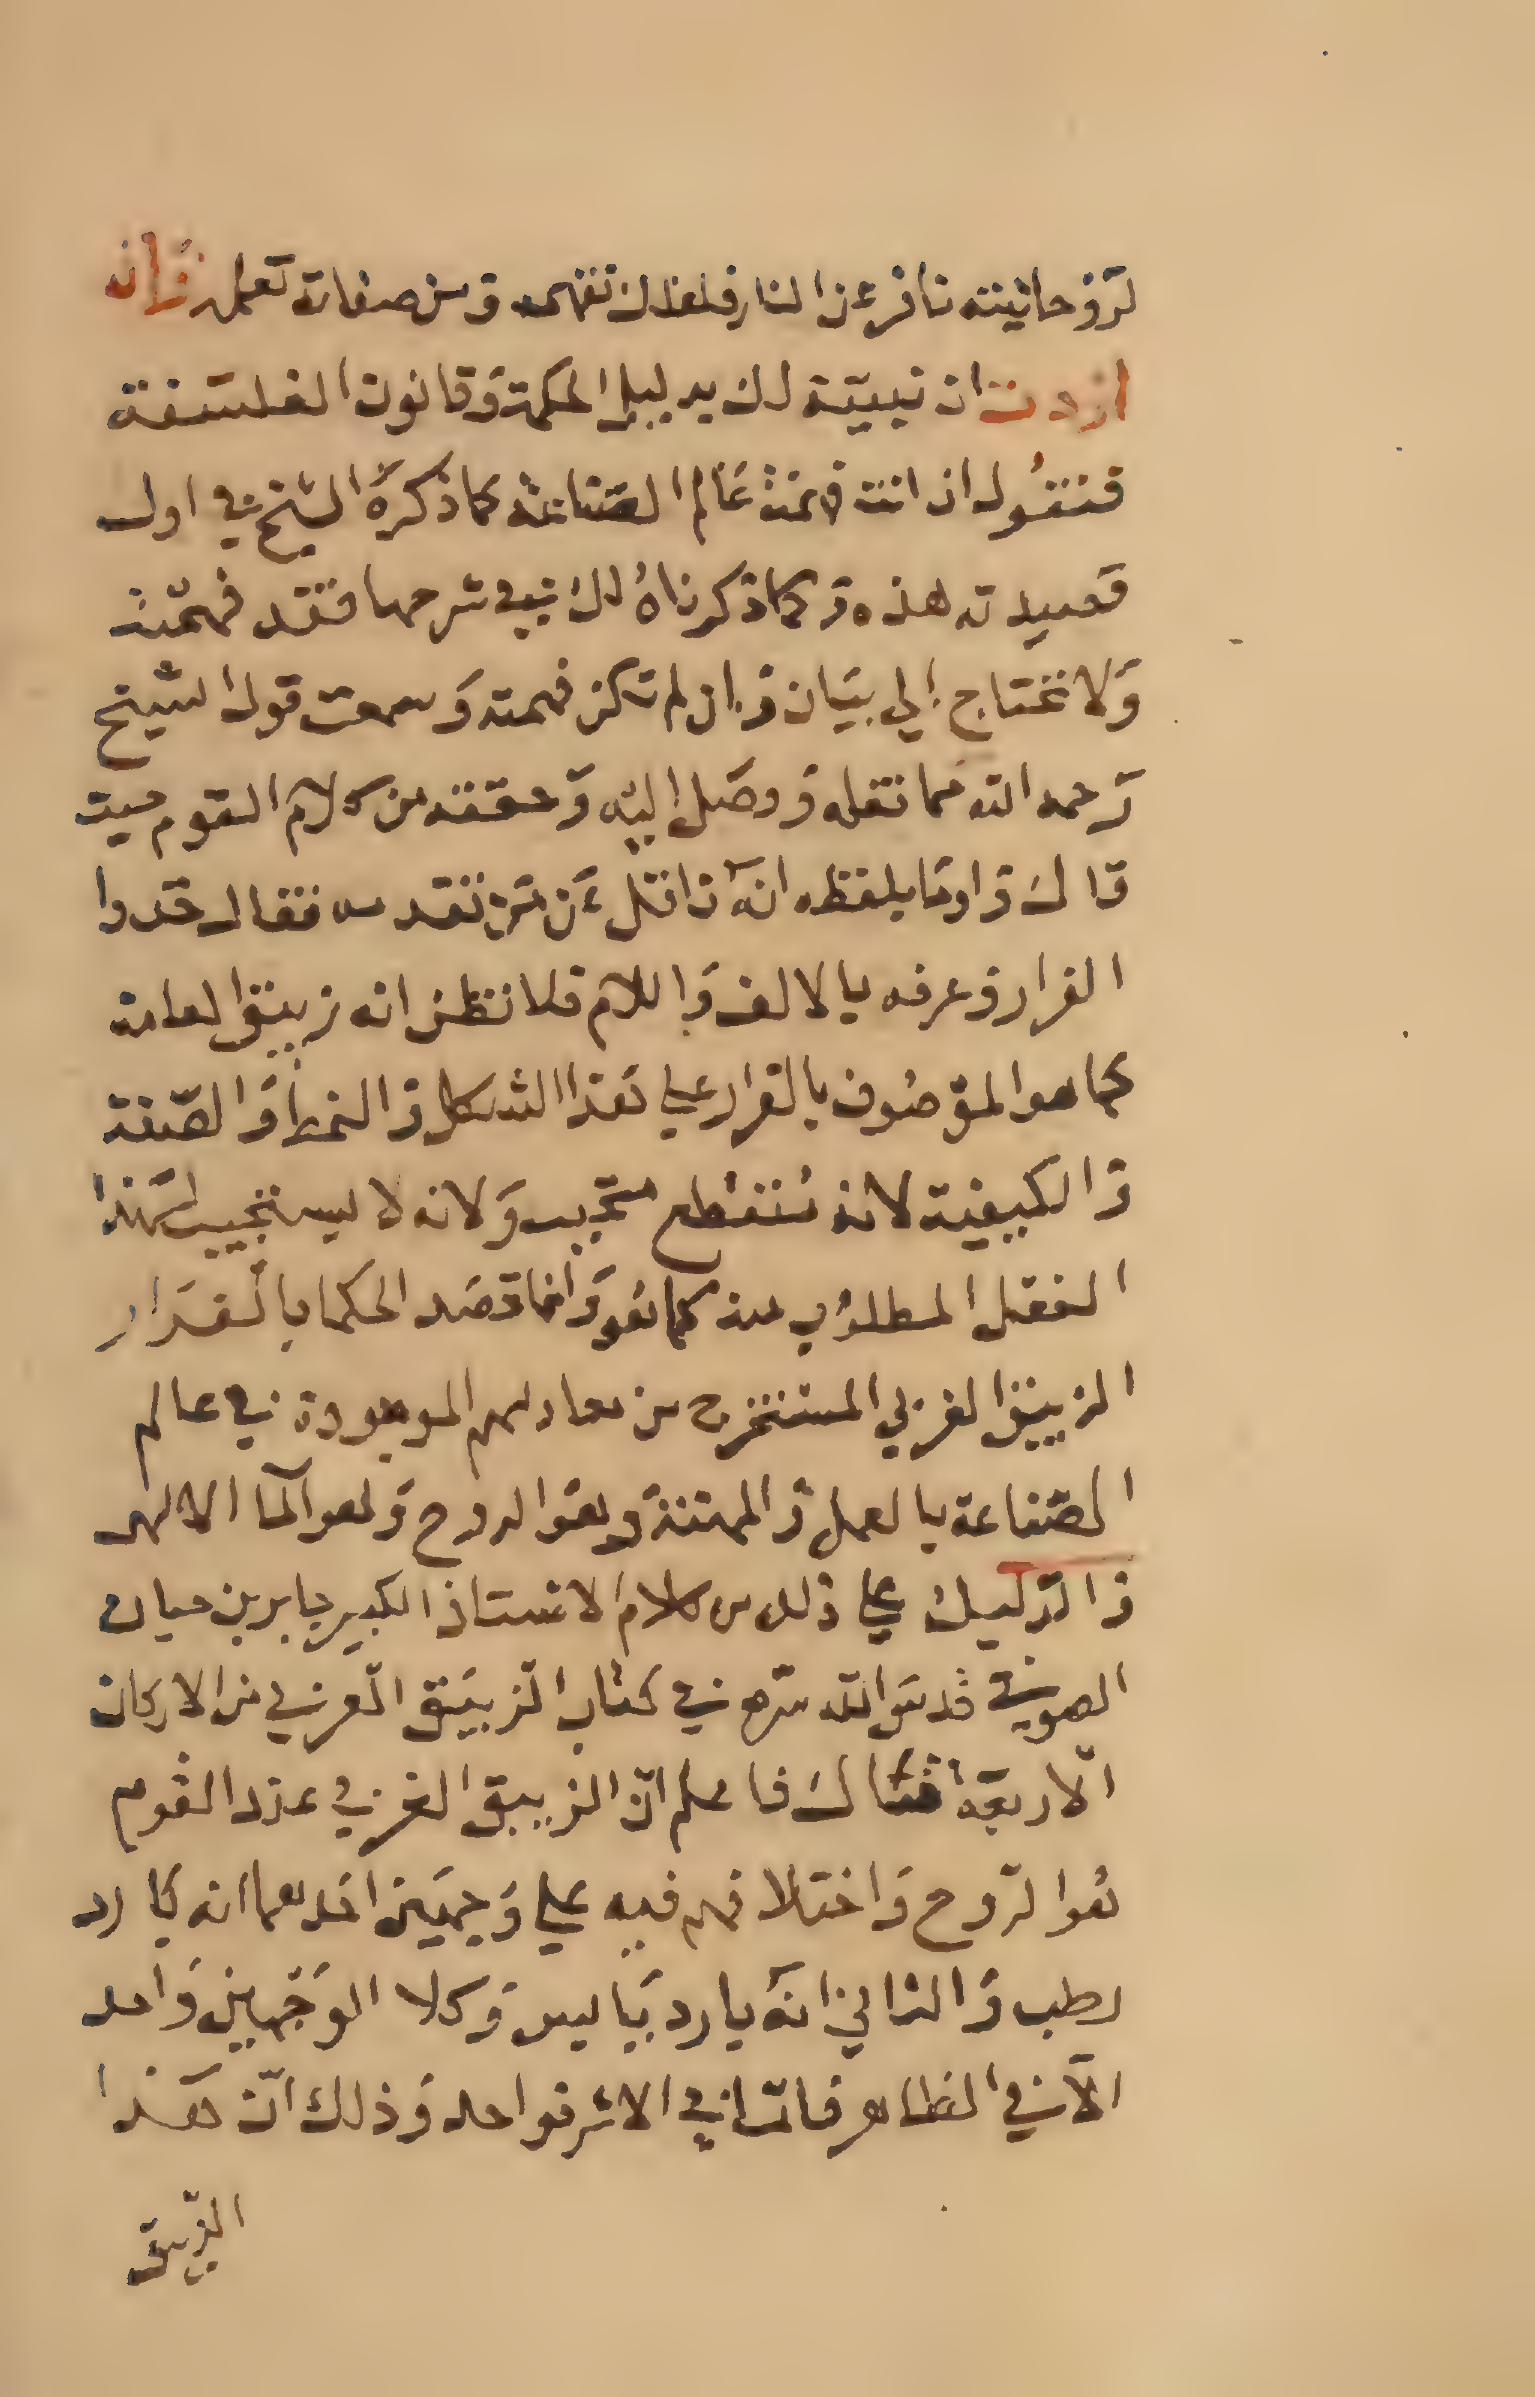 لروحانيته نافر عن النار فلذلك تفهم ومن صفاته تعمل وان
اردت ان نبينه لك بدليل الحكمة وقانون الفلسفة
فنقول ان انت فهمت عالم الصناعة كما ذكره الشيخ في اول
قصيدته هذه وكما ذكرناه لك في شرحها فقد فهمت
ولا تحتاج الي بيان وان لم تكن فهمته وسمعت قول الشيخ
رحمه الله مما نقله ووصل اليه وحققه من كلام القوم حيث
قال واوما بلفظه انه ناقل عن من تقدمه فقال حدوا
الفرار وعرفه بالالف واللام فلا تظن انه زيبق العامة
كما هو الموصوف بالفرار علي هذا الشكل والنمط والصفة
والكيفية لانه منقطع وَلانه لا يستجيب لهذا
الفعل المطلوب منه كما هو وانما قصد الحكما بالفرار
الزيبق الغربي المستخرج من معادنهم الموجودة في عالم
الصناعة بالعمل والمهنة وهو الروح وهو الما الالهي
والدليل علي ذلك من كلام الاستاذ الكبير جابر بن حيان
الصوفي قدس الله سره في كتاب الزيبق الغربي من الاركان
الاربعة فقال فاعلم ان الزيبق الغربي عند القوم
هو الروح واختلافهم فيه علي وجهين احدهما انه بارد
رطب والثاني انه بارد يابس وكلا الوجهين واحد
الا في الظاهر فاما في الاثر فواحد وذلك ان هذا
الزيبق